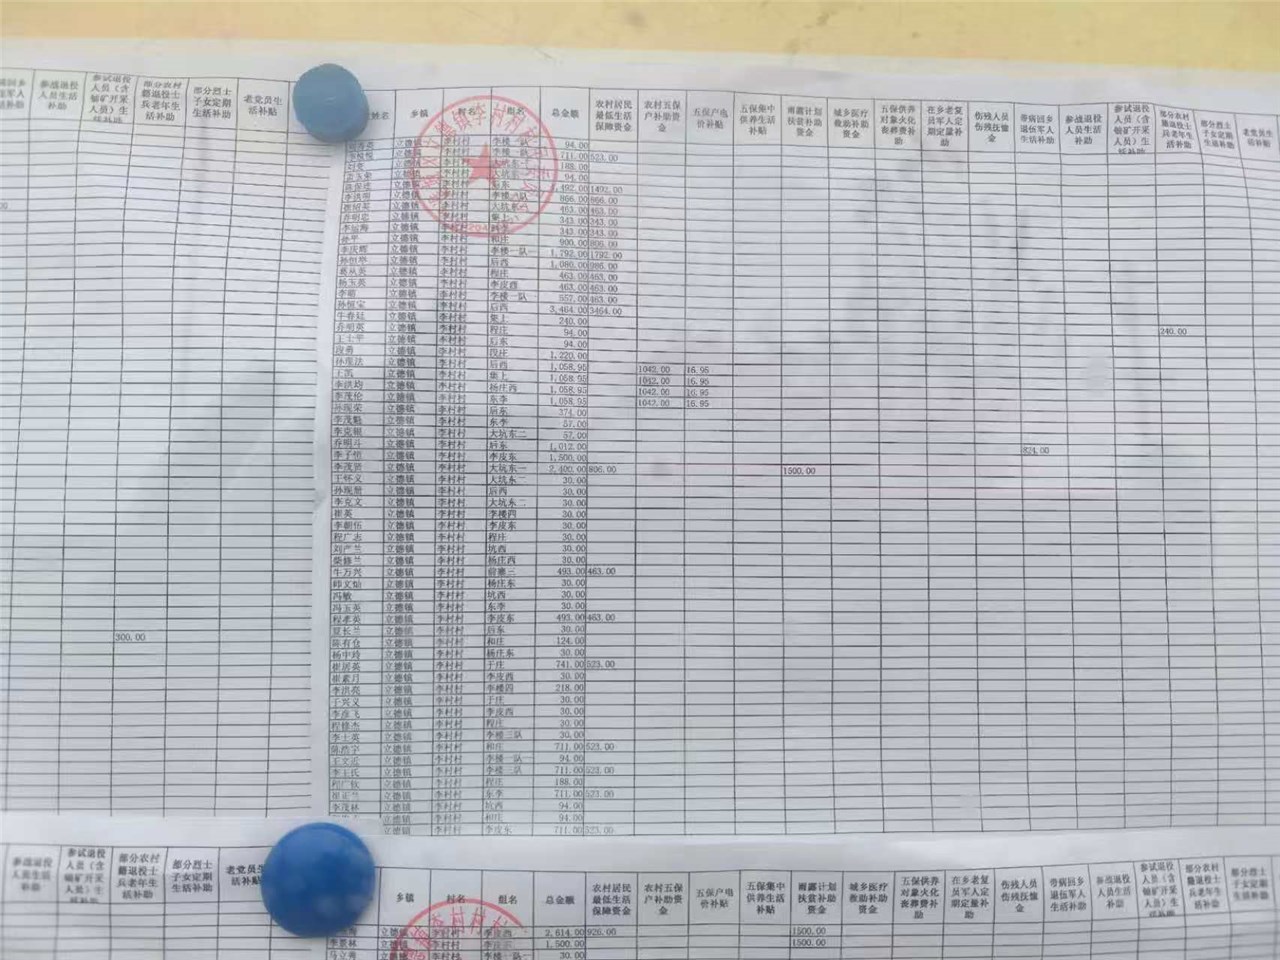 参战退役人员生活补助 参试退役人员(含铀矿开采人员)生活补助 部分农村籍退役士兵老年生活补助 部分烈士子女定期生活补助 老党员生活补助
姓名 乡镇 村名 组名 总金额 农村居民最低生活保障资金 农村五保户补助资金 五保户电价补贴 五保集中供养生活补贴 雨露计划扶贫补助资金 城乡医疗救助补助资金 五保供养对象火化丧葬费补助 在乡老复员军人定期定量补助 伤残人员伤残抚恤金 带病回乡退伍军人生活补助 参战退役人员生活补助 参试退役人员(含铀矿开采人员)生活补助 部分农村籍退役士兵老年生活补助 部分烈士子女定期生活补助 老党员生活补助
立德镇 李村村 李楼一队 94.00
立德镇 李村村 711.00 523.00
立德镇 李村村 188.00
立德镇 李村村 94.00
立德镇 李村村 后东 1,492.00 1492.00
李洪明 立德镇 李村村 866.00 866.00
立德镇 李村村 463.00 463.00
乔明忠 立德镇 李村村 集上 343.00 343.00
李运海 立德镇 李村村 343.00 343.00
孙平 立德镇 李村村 和庄 900.00 806.00
李庆辉 立德镇 李村村 李楼一队 1,792.00 1792.00
孙恒华 立德镇 李村村 后西 1,080.00 986.00
葛从英 立德镇 李村村 程庄 463.00 463.00
杨玉英 立德镇 李村村 李皮西 463.00 463.00
李萌 立德镇 李村村 李楼一队 557.00 463.00
孙恒宝 立德镇 李村村 后西 3,464.00 3464.00
牛春廷 立德镇 李村村 集上 240.00 240.00
乔明英 立德镇 李村村 程庄 94.00
王士平 立德镇 李村村 后东 94.00
段勇 立德镇 李村村 段庄 1,220.00
孙现法 立德镇 李村村 后西 1,058.95 1042.00 16.95
王凯 立德镇 李村村 集上 1,058.95 1042.00 16.95
李洪均 立德镇 李村村 杨庄西 1,058.95 1042.00 16.95
李茂伦 立德镇 李村村 东李 1,058.95 1042.00 16.95
孙现荣 立德镇 李村村 后东 374.00
李茂魁 立德镇 李村村 东李 57.00
李克银 立德镇 李村村 大坑东二 57.00
乔明斗 立德镇 李村村 后东 1,012.00 824.00
李子恒 立德镇 李村村 李皮东 1,500.00 1500.00
李茂贤 立德镇 李村村 大坑东一 2,400.00 806.00
王怀义 立德镇 李村村 大坑东二 30.00
孙现册 立德镇 李村村 后西 30.00
李克文 立德镇 李村村 大坑东二 30.00
崔英 立德镇 李村村 李楼四 30.00
李朝伍 立德镇 李村村 李皮东 30.00
程广志 立德镇 李村村 程庄 30.00
刘产兰 立德镇 李村村 坑西 30.00
柴修兰 立德镇 李村村 杨庄西 30.00
牛万兴 立德镇 李村村 前寨三 493.00 463.00
师文灿 立德镇 李村村 杨庄东 30.00
冯敏 立德镇 李村村 坑西 30.00
冯玉英 立德镇 李村村 东李 30.00
程孝英 立德镇 李村村 李皮东 493.00 463.00
夏长兰 立德镇 李村村 后东 30.00
陈有仓 立德镇 李村村 和庄 124.00
杨中玲 立德镇 李村村 杨庄东 30.00
崔居英 立德镇 李村村 于庄 741.00 523.00
崔素月 立德镇 李村村 李皮西 30.00
李洪亮 立德镇 李村村 李楼四 218.00
于兴义 立德镇 李村村 于庄 30.00
李彦飞 立德镇 李村村 李皮西 30.00
程修杰 立德镇 李村村 程庄 30.00
李士英 立德镇 李村村 李楼三队 30.00
陈浩宇 立德镇 李村村 和庄 711.00 523.00
立德镇 李村村 李楼一队 94.00
李王氏 立德镇 李村村 李楼三队 711.00 523.00
程广钦 立德镇 李村村 程庄 188.00
崔正兰 立德镇 李村村 东李 711.00 523.00
李茂林 立德镇 李村村 坑西 94.00
立德镇 李村村 和庄 94.00
立德镇 李村村 李皮东 711.00 523.00
300.00
参战退役人员生活补助 参试退役人员(含铀矿开采人员)生活补助 部分农村籍退役士兵老年生活补助 部分烈士子女定期生活补助 老党员生活补助
乡镇 村名 组名 总金额 农村居民最低生活保障资金 农村五保户补助资金 五保户电价补贴 五保集中供养生活补贴 雨露计划扶贫补助资金 城乡医疗救助补助资金 五保供养对象火化丧葬费补助 在乡老复员军人定期定量补助 伤残人员伤残抚恤金 带病回乡退伍军人生活补助 参战退役人员生活补助 参试退役人员(含铀矿开采人员)生活补助 部分农村籍退役士兵老年生活补助 部分烈士
立德镇 李村村 李皮西 2,614.00 926.00 1500.00
李景林 立德镇 李村村 1,500.00 1500.00
马立秀 立德镇 李村村 李楼一队 30.00